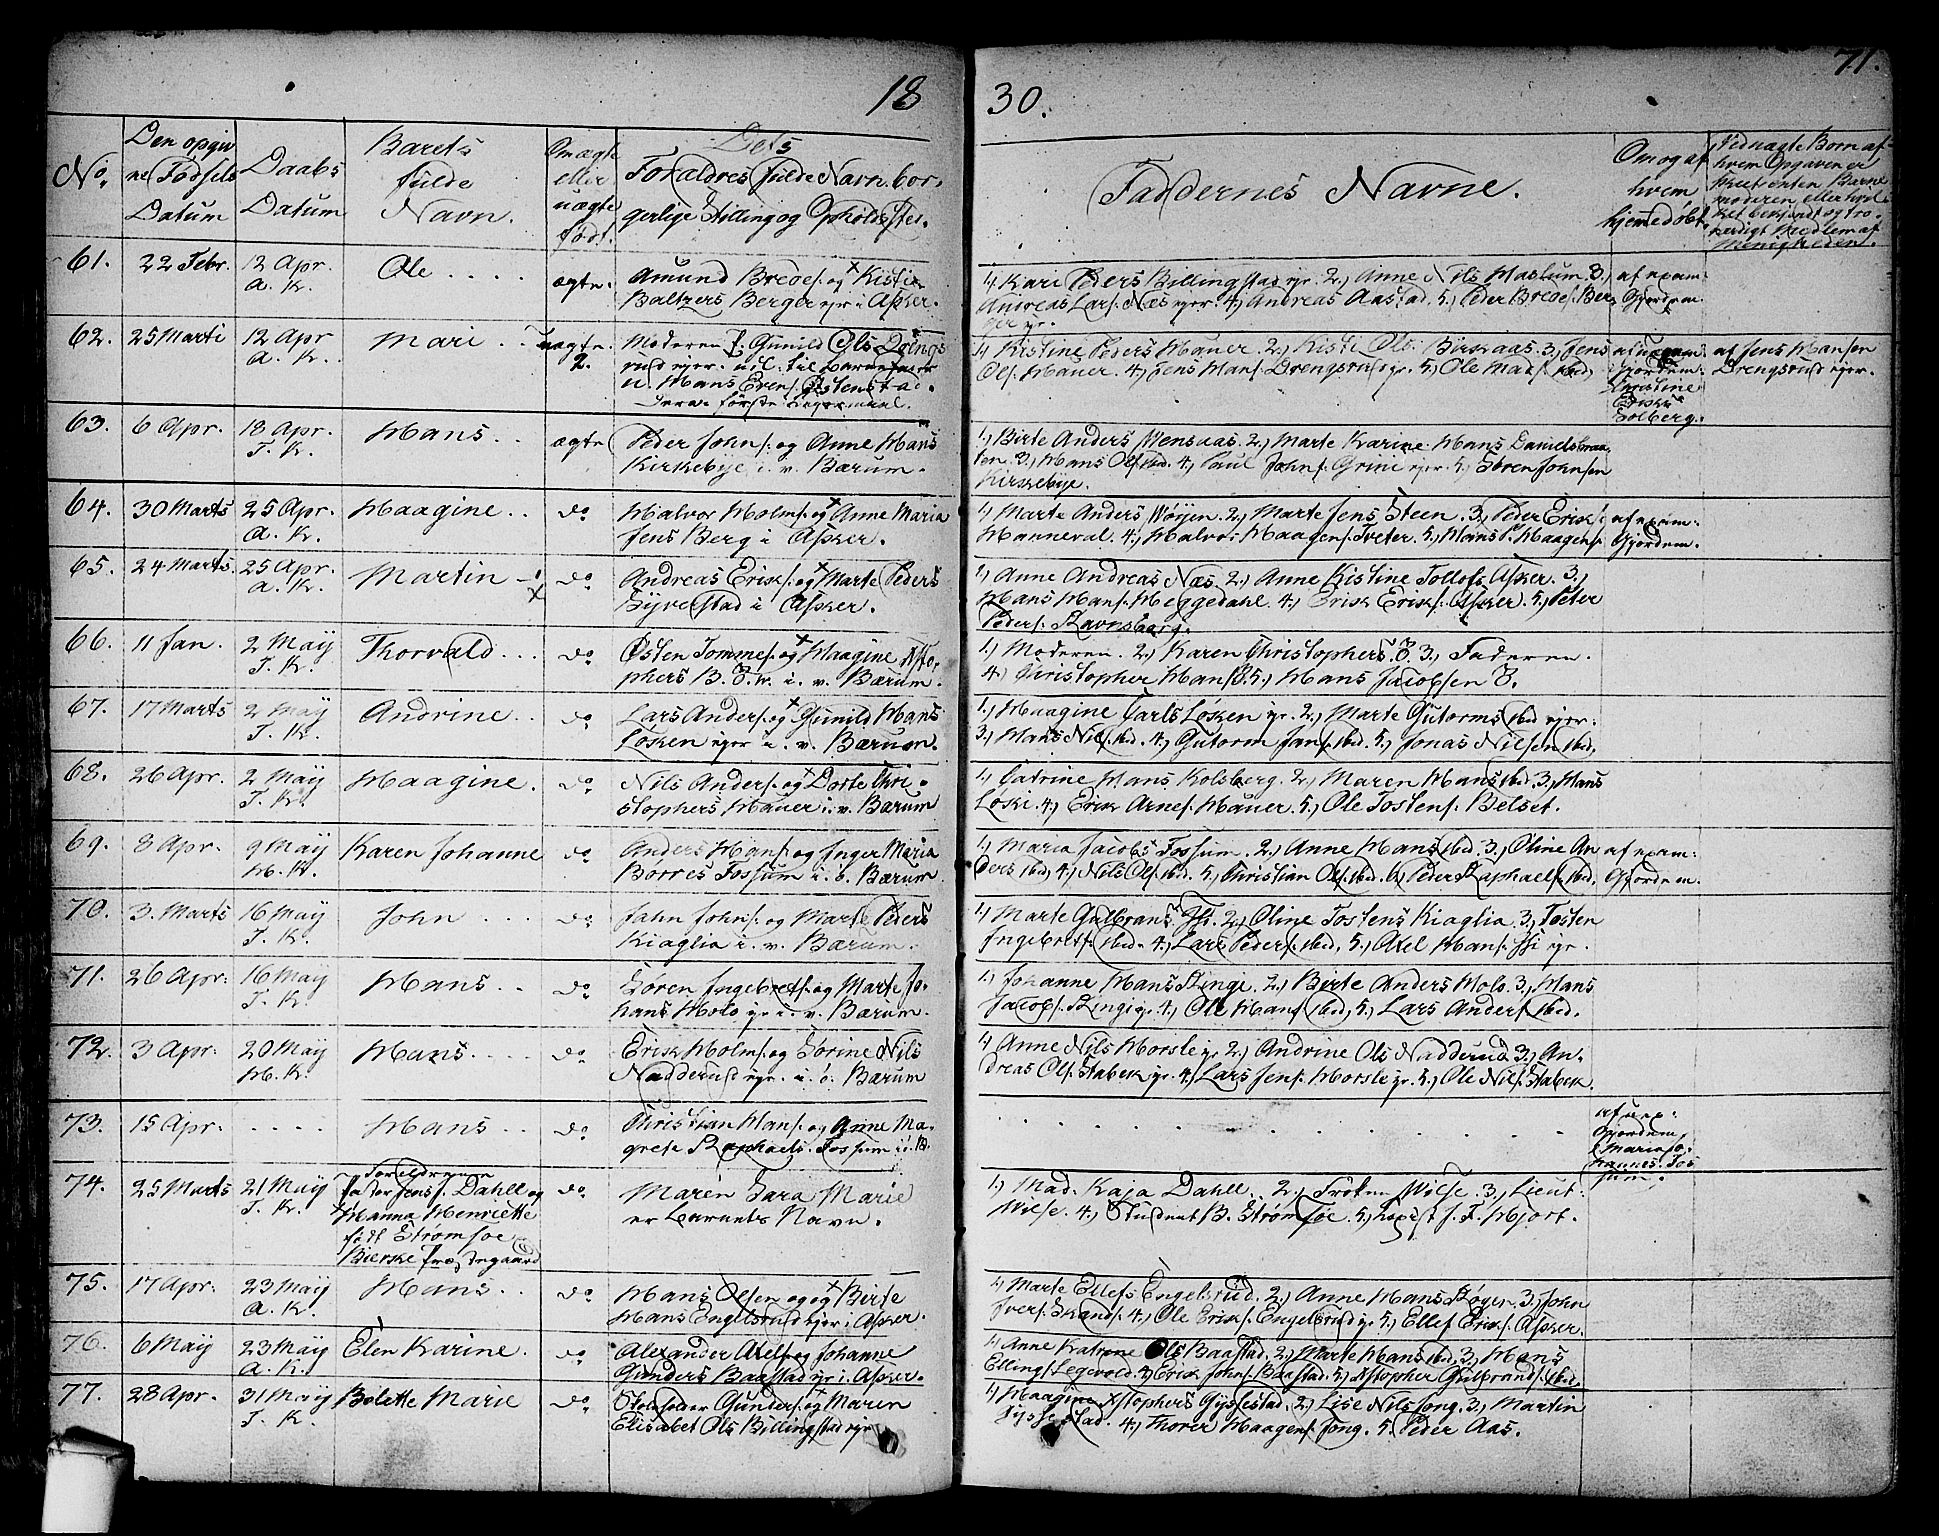 18
30.
71.
No.
Den opgiv
ne Födsels
Datum
Daabs
Datum
Barets
fulde
Navn.
Om ægte
eller
uægte
födt.
Dets
Forældres fulde Navn. bor-
gerlige Stilling og Opholdsted.
Faddernes Navne.
Om og af
hvem
hjemmedöbt.
Vednagte Börn af
hvem Opgaven er
skeet enten Barne
moderen eller hvil
ket bekjendt og tro
værdigt Medlem af
Menigheden.
61.
22 Febr.
12 Apr.
A. K.
Ole . . . .
ægte.
Amund Bredes. og Kisti
Baltzers Berger ejer i Asker.
1, Kari Peders Billingstad ejr 2, Anne Nils Haslum. 3,
Andreas Lars. Næs ejer. 4, Andreas Aastad. 5, Peder Bredes. Ber
ger ejr.
af exam:
Gjordem.
62.
25 Marti
12 Apr
A. K.
Mari . .
uægte.
2.
Moderen P. Gunild Ols Drengs
rud ejer. udl. til Barnefader
U. Hans Evens. Östensta
Deres förste Leiermaal.
1, Kistine Peders Hauer 2, Kisti Ols Birkaas. 3, Jens
Ols. Hauer. 4, Jens Hans. Drengsrud ejr. 5, Ole Mads. ibid.
af exam:
Gjordem:
Christine
Eriks
Solberg.
af Jens Hansen
Drengsrud ejer.
63.
6 Apr.
18 Apr.
T. K.
Hans . .
ægte
Peder Johns. og Anne Hans
Kirkebye i. v. Bærum.
1, Birte Anders Wensaas. 2, Marte Karine Hans Danielsbraa
ten. 3, Hans Ols. ibid. 4, Paul Johns. Grini ejr. 5, Sören Johnsen
Kirkebye.
64.
30 Marts
25 Apr.
A. K.
Haagine . .
do
Halvor Holms. og Anne Maria
Jens Berg i Asker.
1, Marte Anders Wöyen. 2, Marte Jens Steen. 3, Peder Eriks.
Hanneval. 4, Halvor Haagens. Tveter. 5, Hans P. Haagens.
af exam:
Gjordem.
65.
24 Marts.
25 Apr.
A. K.
Martin
do
Andreas Eriks. og Marte Peders
Syverstad i Asker.
1, Anne Andreas Næs. 2, Anne Kistine Tollofs Asker. 3,
Hans Hans. Heggedahl. 4, Erik Eriks. Asker. 5, Peter
Peders. Ravnsborg.
66.
11 Jan.
2 May
T. K.
Thorvald . . .
do
Östen Tommes. og Haagine Xsto-
phers B. E. V. i. v. Bærum.
1, Moderen. 2, Karen Christophers. E. 3, Faderen.
4, Christopher Hans. E. 5, Hans Jacobsen E.
67.
17 Marts
2 May
T. K.
Andrine . .
do
Lars Anders. og Gunild Hans
Lösken ejer i. v. Bærum.
1, Haagine Carls Lösken ejr. 2, Marte Gutorms ibid ejer.
3, Hans Nils. ibid. 4, Gutorm Jans. ibid. 5, Jonas Nilsen ibid.
68.
26 Apr.
2 May
T. K.
Haagine .
do
Nils Anders. og Dorte Chri-
stophers Hauer i. v. Bærum
1, Catrine Hans Kolsberg. 2, Maren Hans ibid. 3, Hans
Löski 4, Erik Arnes. Hauer. 5, Ole Tostens. Belset.
69.
8 Apr.
9 May
H. K.
Karen Johanne
do
Anders Hans. og Inger Maria
Borres Fossum i. ö. Bærum.
1, Maria Jacobs Fossum. 2, Anne Hans ibid. 3, Oline An
ders ibid 4, Nils Ols. ibid. 5, Christian Ols. ibid. 6, Peder Raphaels. ibid.
af exam:
Gjordem.
70.
3 Marts
16 May
T. K.
John . . .
do
Jahn Johns. og Marte Peders
Kiaglia i. v. Bærum.
1, Marte Gulbrans Isi. 2, Oline Tostens Kiaglia. 3, Tosten
Ingebrets. ibid. 4, Lars Peders. ibid. 5, Axel Hans. Isi ejr.
71.
26 Apr:
16 May
T. K.
Hans . .
do
Sören Ingebrets. og Marte Jo-
hans Holo ejr i. v. Bærum.
1, Johanne Hans Ringi. 2, Birte Anders Holo. 3, Hans
Jacobs. Ringi ejr. 4, Ole Hans. ibid, 5, Lars Anders. ibid.
72.
3 Apr:
20 May
H. K.
Hans . . . .
do
Erik Holms. og Sörine Nils
Nadderud ejr. i. ö. Bærum
1, Anne Nils Horsle ejr 2, Andrine Ols Nadderud 3, An-
dreas Ols. Stabek ejr. 4, Lars Jens. Horsle ejr. 5, Ole Nils. Stabek
73.
15 Apr:
. . . .
Hans . .
do
Christian Hans. og Anne Ma-
grete Raphaels Fossum i. ö. B.
af exa:
Gjordem
Maria Jo
hannes. Fos
sum.
74.
25 Marts
21 May
T. K.
Forældrene
Pastor Jens J. Dahll og
Hanna Henriette
født Strömsoe
Bierke Præstegaard
do
Maren Sara Marie
er Barnets Navn.
1, Mad. Kaja Dahll. 2, Fröken Wilse. 3, Lieut.
Wilse. 4, Student B. Strömsoe. 5, Kopist J. F. Hjort.
75.
17 Apr:
23 May
A. K.
Hans . .
do
Hans Olsen og Birte
Hans Engelsrud ejer i Asker.
1, Marte Ellefs Engelsrud. 2, Anne Hans Röyer. 3, John
Ivers. Skands. 4, Ole Eriks. Engelsrud ejr. 5, Ellef Eriks. Asker.
76.
6 May
23 May
A. K.
Elen Karine.
do
Alexander Axels og Johanne
Gunders Baastad ejr i. Asker.
1, Anne Katrine Ols Baastad. 2, Marte Hans ibid. 3, Hans
Ellings. Legevold. 4, Erik Johns. Baastad. 5, Xstopher Gulbrands. ibid.
77.
28 Apr.
31 May
T. K.
Bolette Marie
do
Gunders. og Maren
Elisabet Ols Billingstad ejr
1, Haagine Xstophers Gyssestad. 2, Lise Nils Jong. 3, Martin
Gyssestad. 4, Thorer Haagens. Jong. 5, Peder Aas.